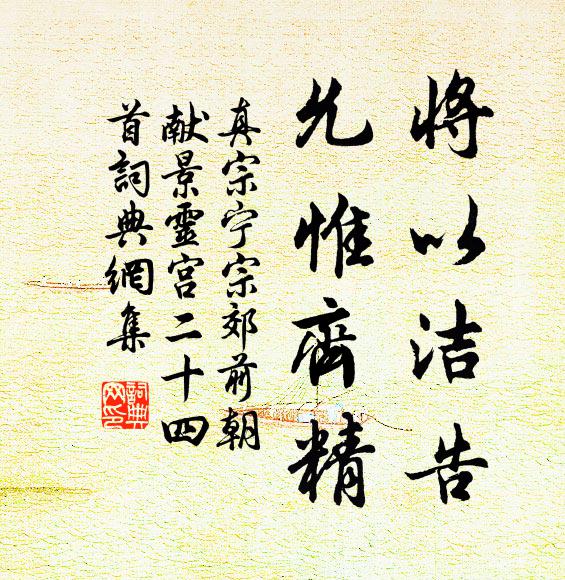 将以洁告
允惟齊精
真宗宁宗郊前朝
献景靈宫二十四
首詞典網集
詞典網印